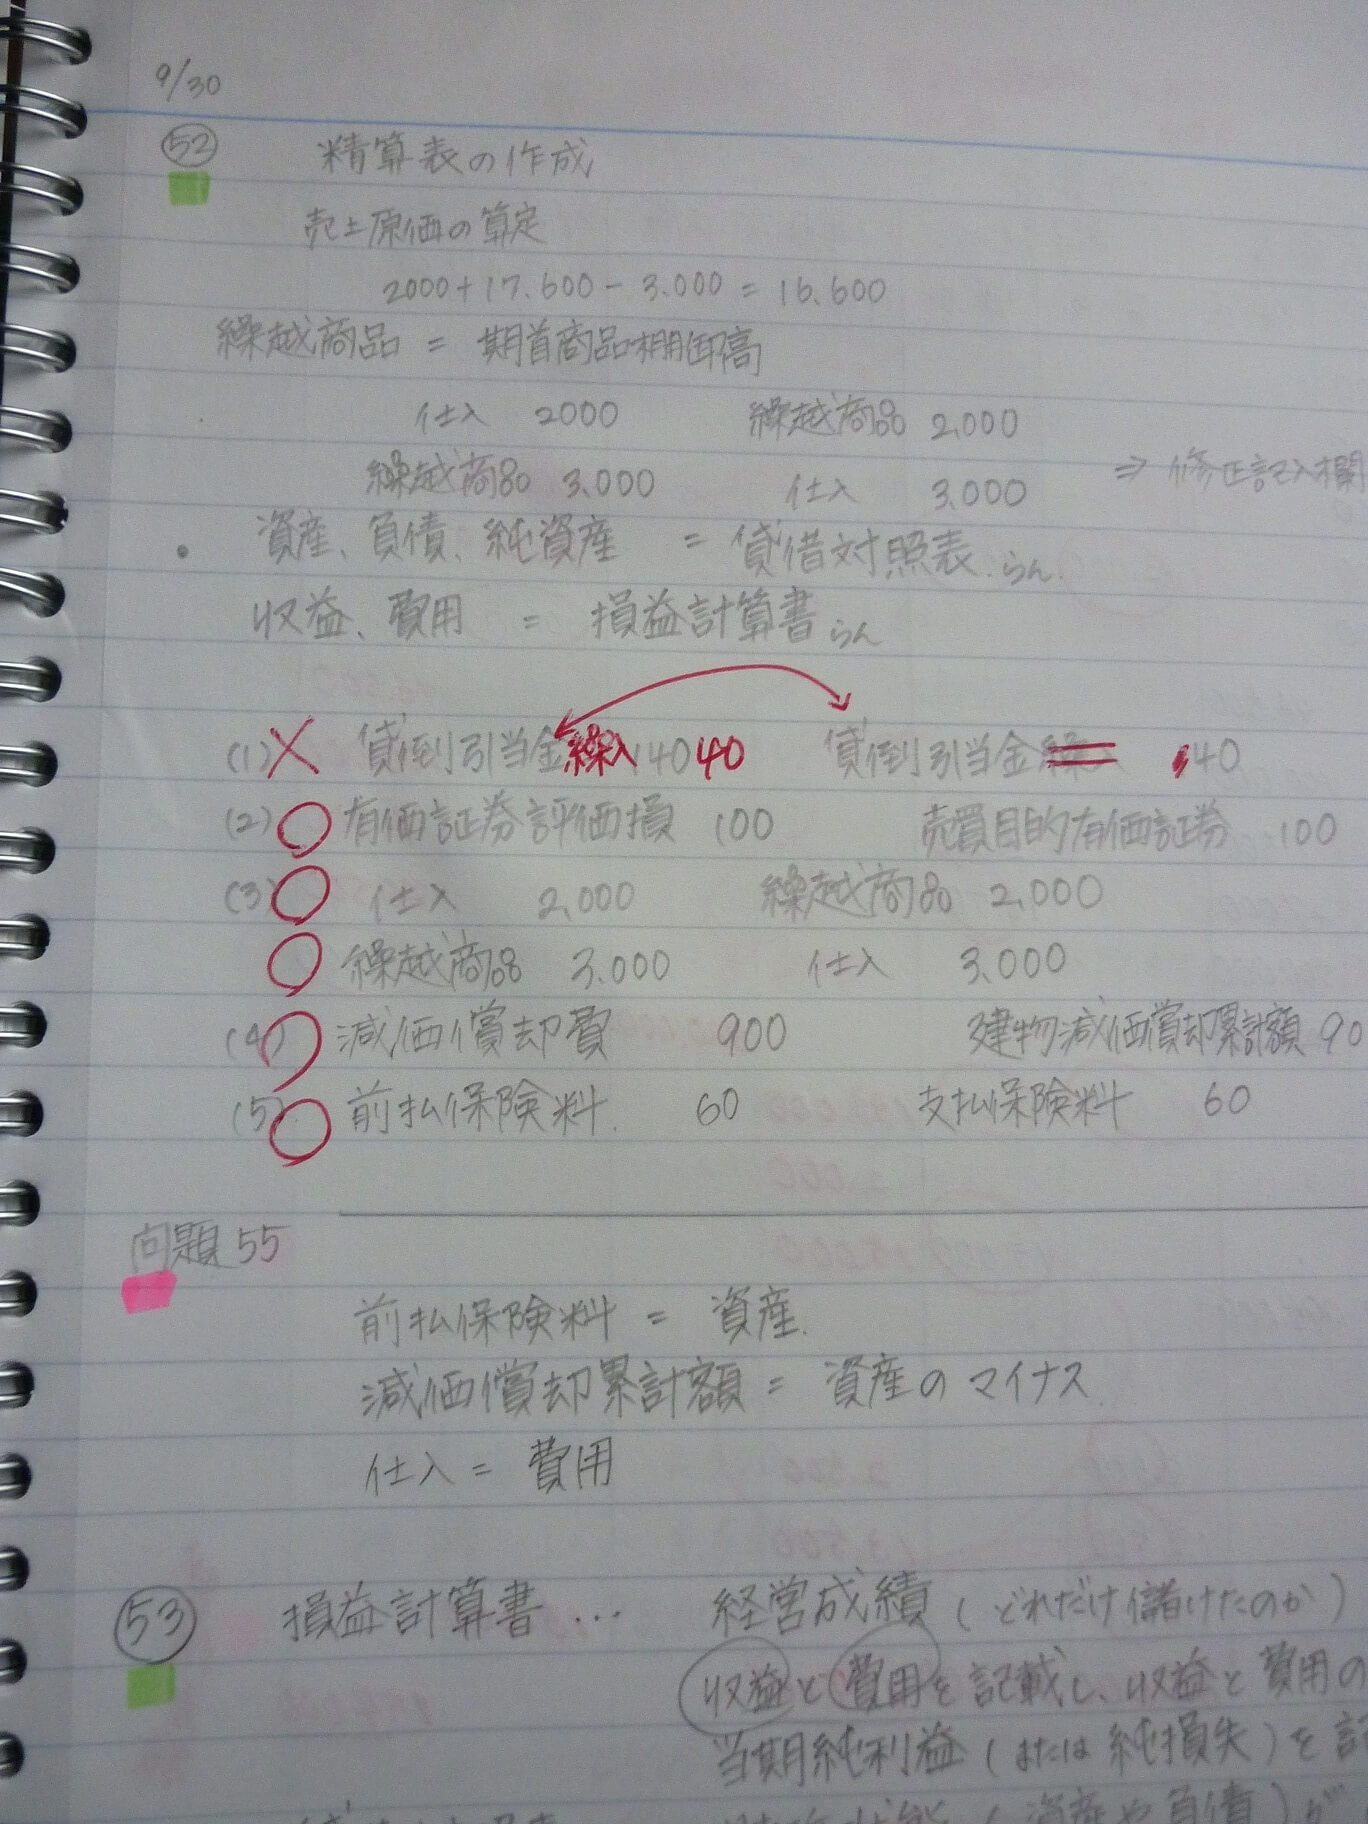 9/30
52 精算表の作成
売上原価の算定
2000+17.600-3.000=16.600
繰越商品 = 期首商品棚卸高
仕入 2000 繰越商品 2,000
繰越商品 3.000 仕入 3.000 ⇒ 修正記入欄
・資産、負債、純資産 = 貸借対照表 らん.
収益、費用 = 損益計算書 らん
(1)× 貸倒引当金繰入 140 40 貸倒引当金 140
(2)○ 有価証券評価損 100 売買目的有価証券 100
(3)○ 仕入 2,000 繰越商品 2,000
○ 繰越商品 3.000 仕入 3.000
(4)○ 減価償却費 900 建物減価償却累計額 90
(5)○ 前払保険料. 60 支払保険料 60
問題55
前払保険料 = 資産.
減価償却累計額 = 資産のマイナス.
仕入 = 費用
53 損益計算書 ... 経営成績 (どれだけ儲けたのか)
収益と費用を記載し、収益と費用の
当期純利益 (または純損失) を
(資産や負債) が